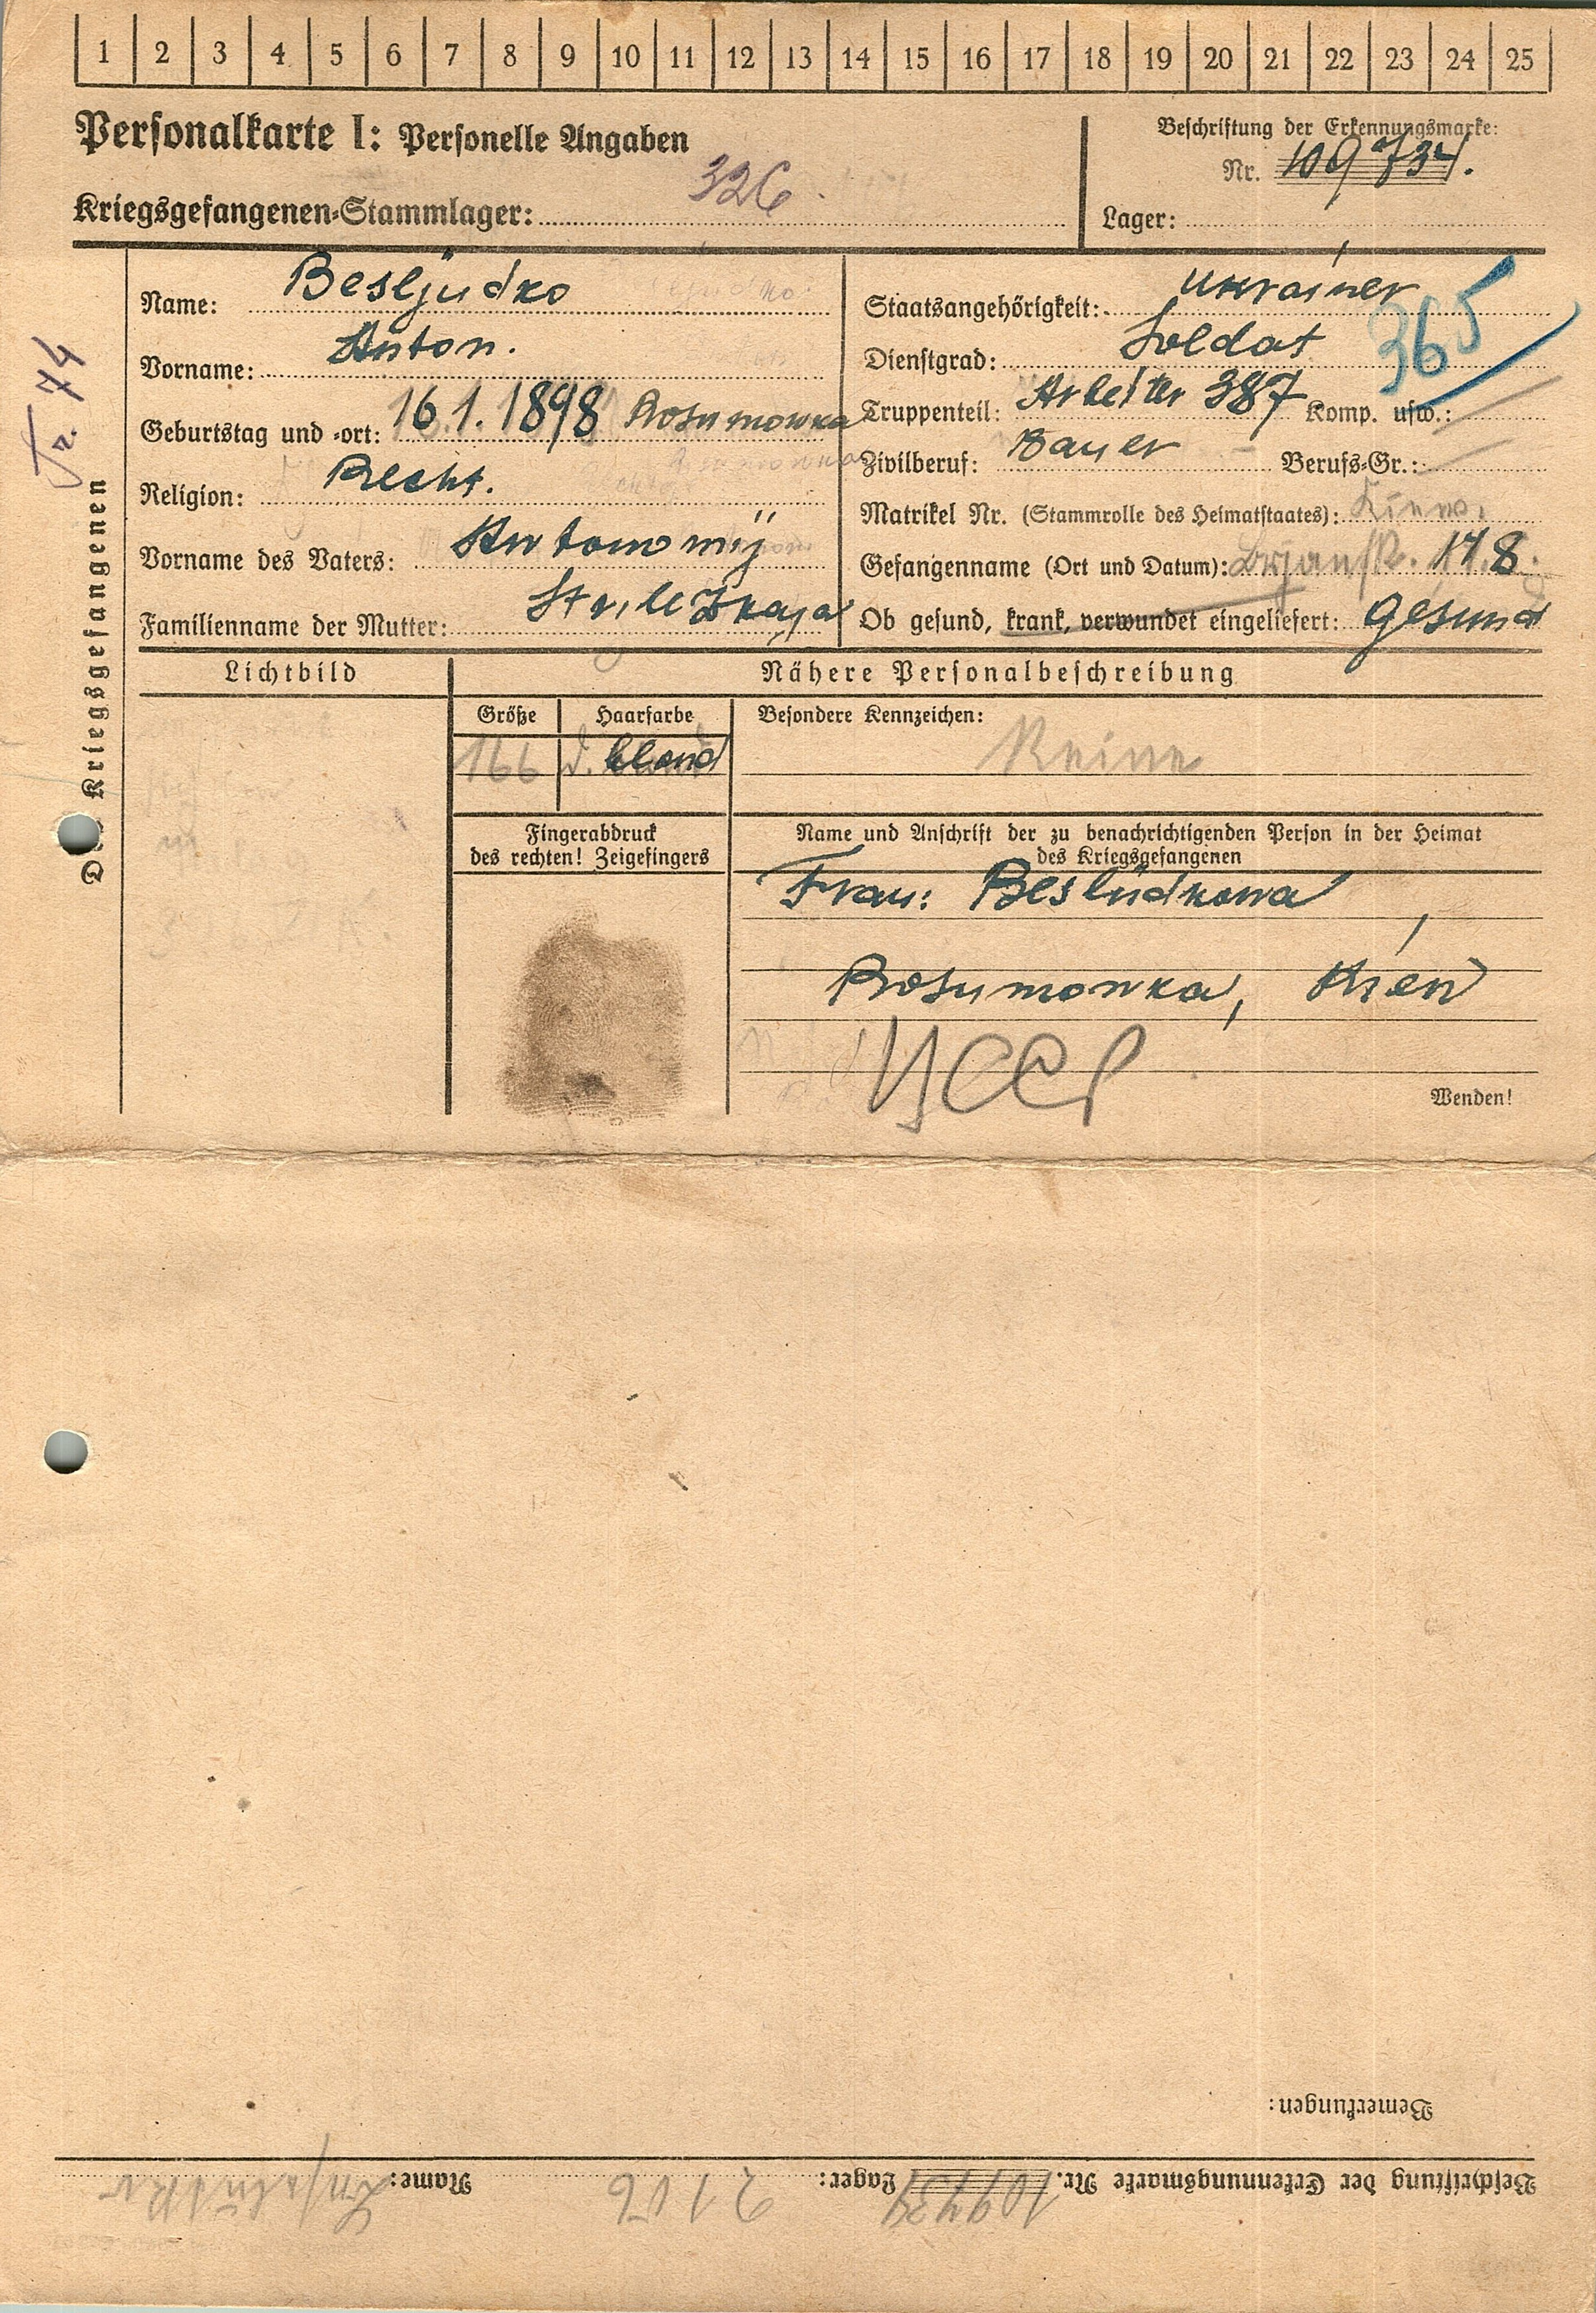 1 2 3 4 5 6 7 8 9 10 11 12 13 14 15 16 17 18 19 20 21 22 23 24 25
Personalkarte I: Personelle Angaben
Beschriftung der Erkennungsmarke:
Nr. 109734.
Kriegsgefangenen-Stammlager: 326
Lager:
Des Kriegsgefangenen
Name: Besljudko
Staatsangehörigkeit: Ukrainer
365
Vorname: Anton.
Dienstgrad: Soldat
Geburtstag und -ort: 16.1.1898 Rosumowka
Truppenteil: Arbeiter 387 Komp. usw.:
Religion: Recht.
Zivilberuf: Bauer Berufs-Gr.:
Matrikel Nr. (Stammrolle des Heimatstaates): Kiew.
Vorname des Vaters: Antonomij
Gefangenname (Ort und Datum): Brjansk. 17.8.
Familienname der Mutter:
Ob gesund, krank, verwundet eingeliefert: gesund
Lichtbild
Nähere Personalbeschreibung
Größe Haarfarbe Besondere Kennzeichen:
166 d. blond Keine
Fingerabdruck
des rechten! Zeigefingers
Name und Anschrift der zu benachrichtigenden Person in der Heimat
des Kriegsgefangenen
Frau: Besludkowa
Rosumowka, Kiew
УССР
Wenden!
Bemerkungen:
Beschriftung der Erkennungsmarke Nr. 109734 Lager: Name: